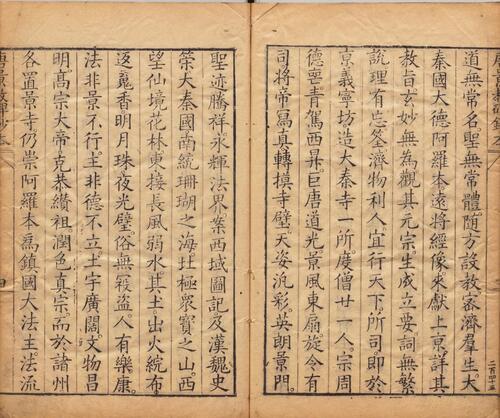 道無常名聖無常體随方設教密濟羣生大
秦國大德阿羅本遠將經像來獻上京詳其
教旨玄妙無為觀其元宗生成立要詞無繁
說理有忘筌濟物利人宜行天下所司即於
京義寧坊造大秦寺一所度僧廿一人宗周
德喪青駕西昇巨唐道光景風東扇旋令有
司將帝寫真轉摸寺壁天姿汎彩英朗景門
聖迹騰祥永輝法界案西域圖記及漢魏史
策大秦國南統珊瑚之海北極衆寶之山西
望仙境花林東接長風弱水其土出火綄布
返魂香明月珠夜光璧俗無寇盜人有樂康
法非景不行主非德不立土宇廣闊文物昌
明高宗大帝克恭纘祖潤色真宗而於諸州
各置景寺仍崇阿羅本為鎮國大法主法流